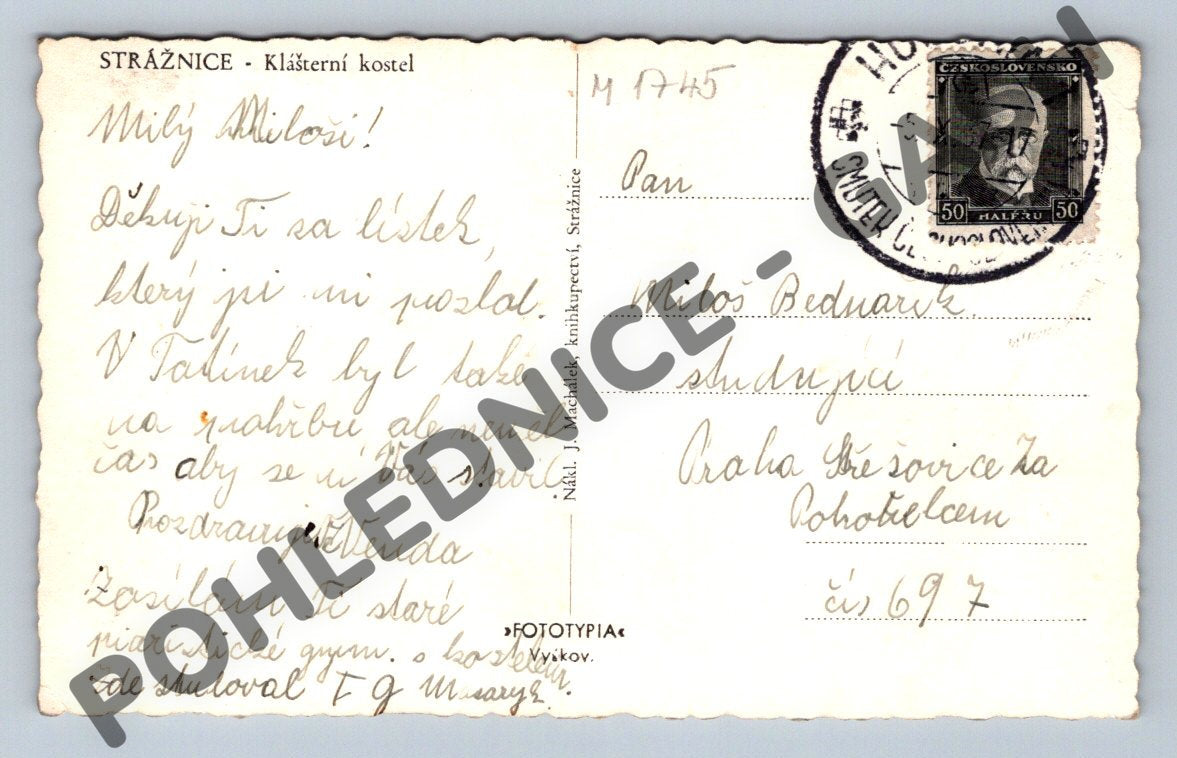 STRÁŽNICE - Klášterní kostel
Milý Miloši!
Děkuji Ti za lístek,
který jsi mi poslal.
V Tatínek byl také
na pohřbu ale neměl
čas aby se u Vás stavil
Pozdravuje Venda
Zasílám Ti staré
piaristické gymn. s kostelem.
Zde studoval T G Masaryk.
Nákl. J. Machálek, knihkupectví, Strážnice
»FOTOTYPIA«
Vyškov.
M 1745
ČESKOSLOVENSKO
50 HALÉŘŮ 50
SMUTEK
Pan
Miloš Bednařík
studující
Praha Střešovice Za
Pohořelcem
čís 697
POHLEDNICE -